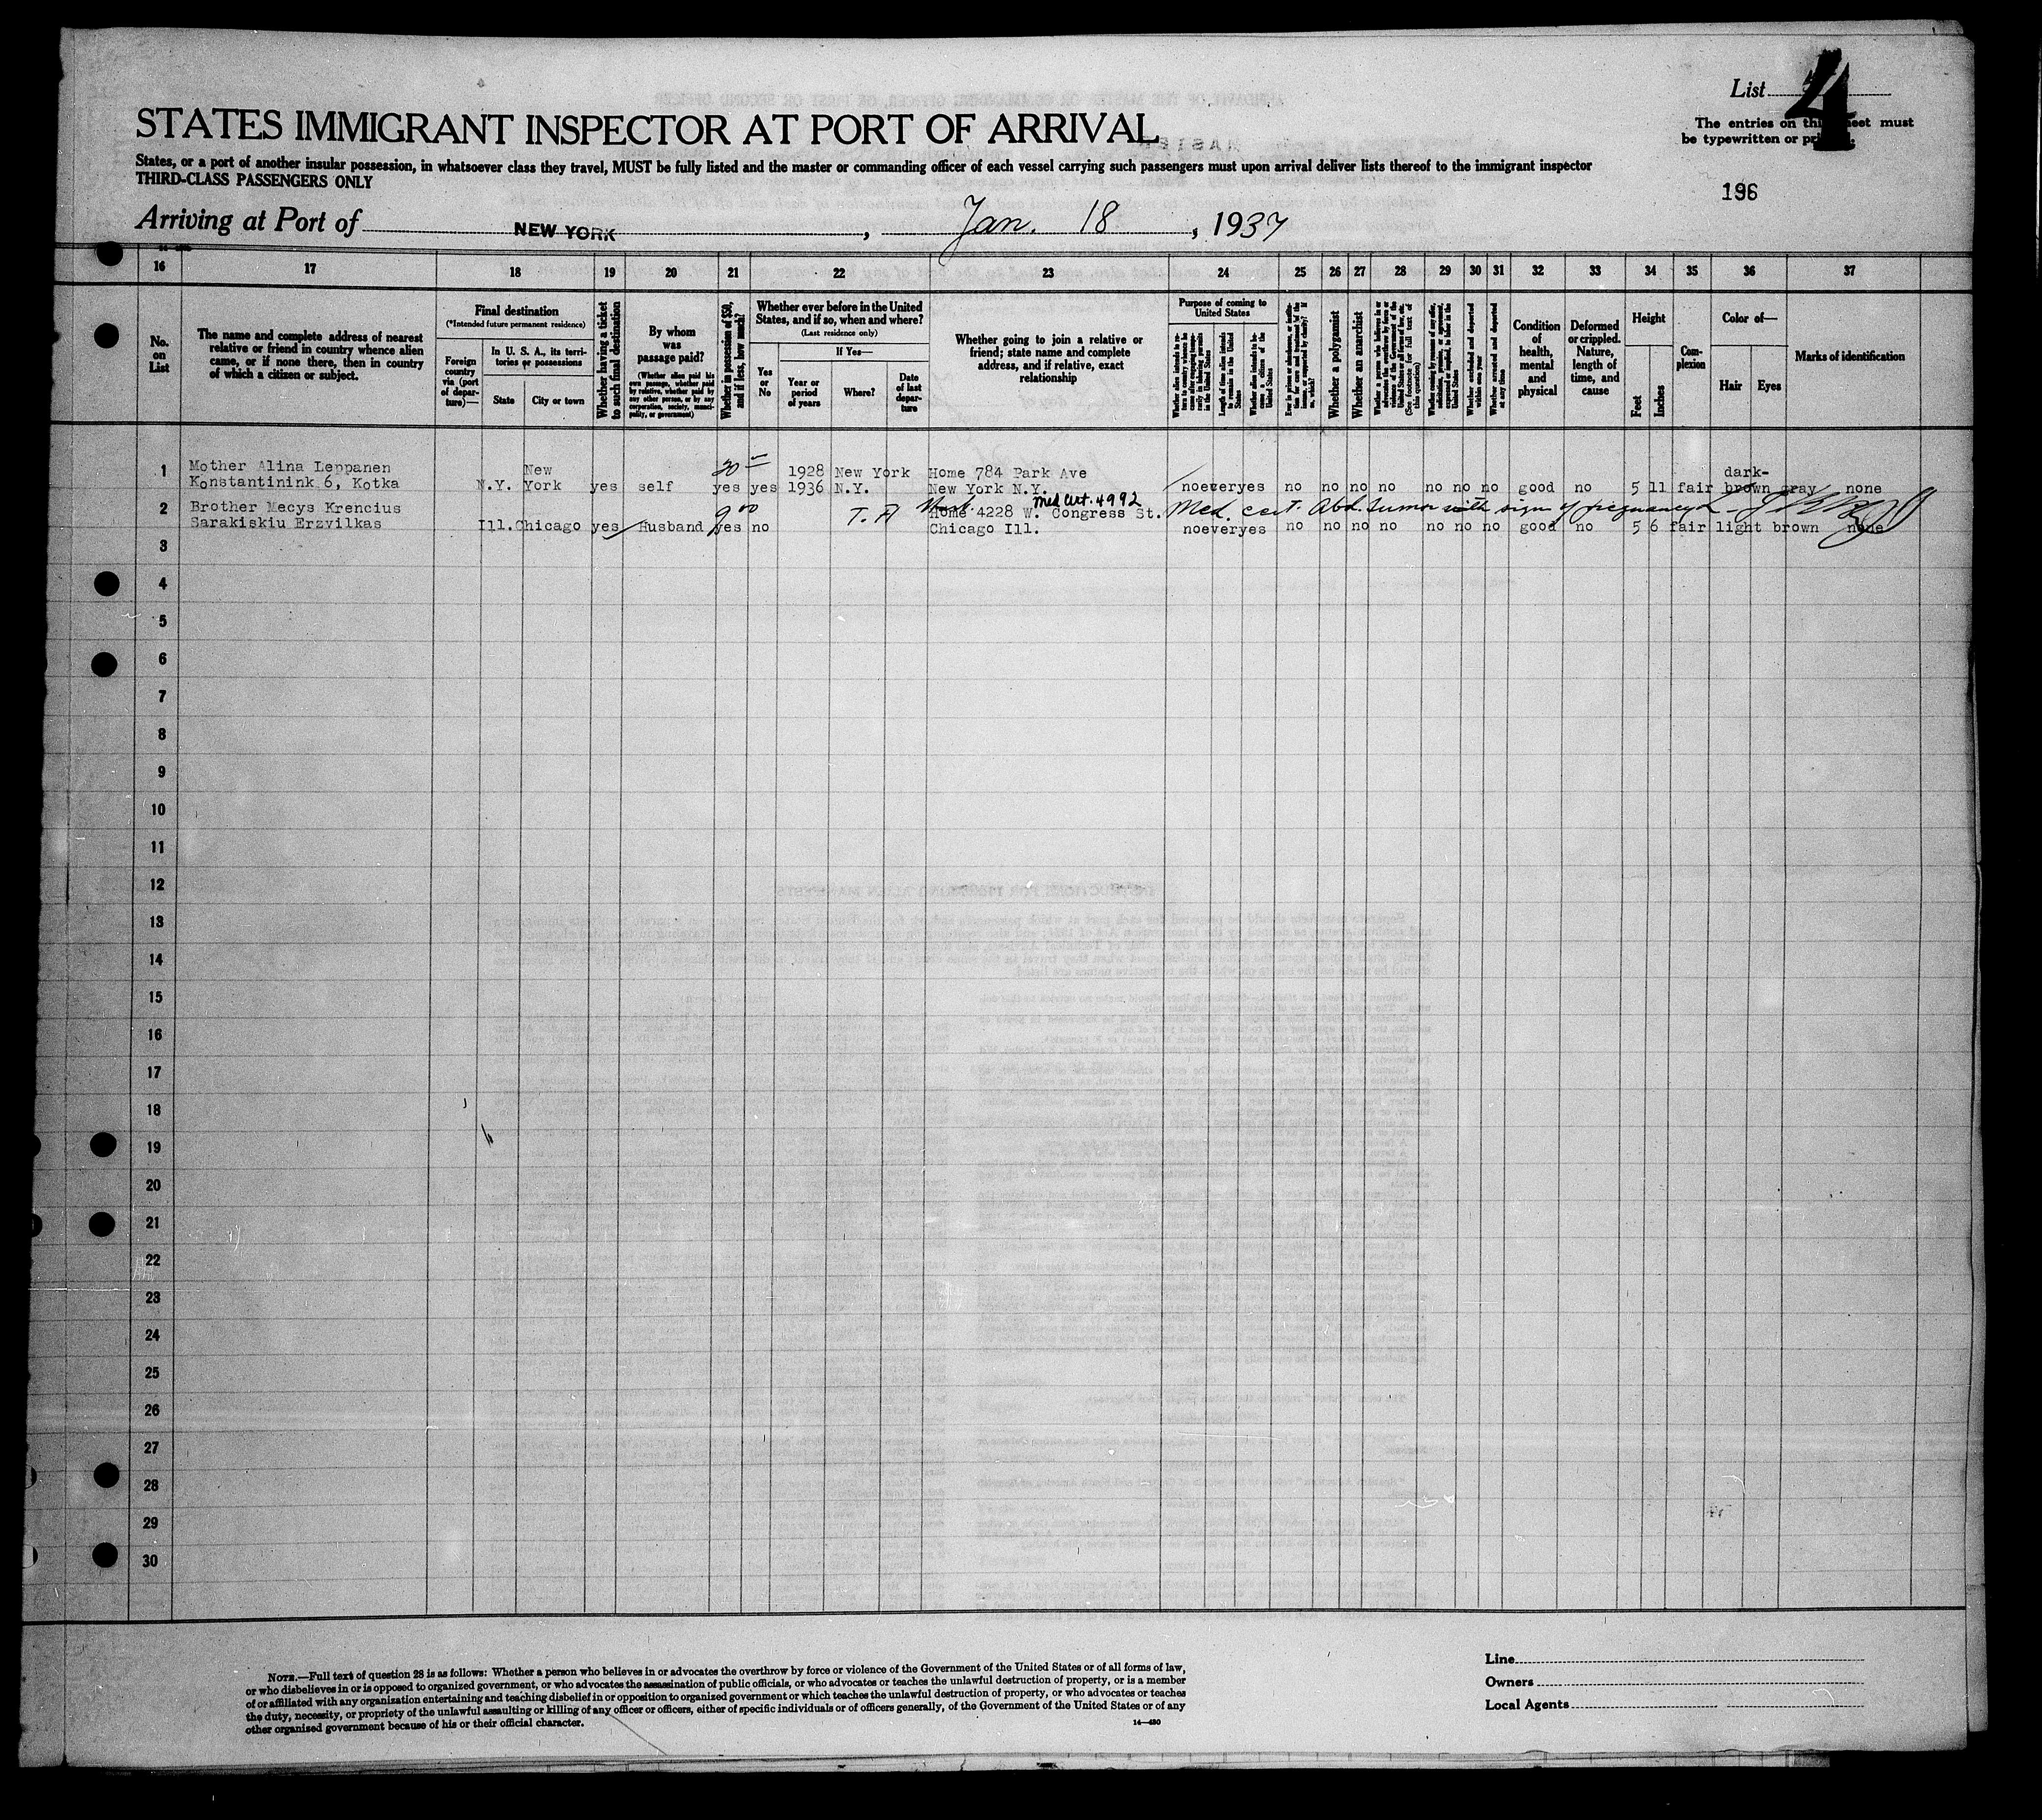 List 4
STATES IMMIGRANT INSPECTOR AT PORT OF ARRIVAL
The entries on this sheet must
be typewritten or printed.
States, or a port of another insular possession, in whatsoever class they travel, MUST be fully listed and the master or commanding officer of each vessel carrying such passengers must upon arrival deliver lists thereof to the immigrant inspector
THIRD-CLASS PASSENGERS ONLY
196
Arriving at Port of NEW YORK, Jan. 18, 1937
16 17 18 19 20 21 22 23 24 25 26 27 28 29 30 31 32 33 34 35 36 37
No. on List
The name and complete address of nearest
relative or friend in country whence alien
came, or if none there, then in country
of which a citizen or subject.
Final destination
(*Intended future permanent residence)
Foreign country via (port of departure)—
In U. S. A., its territories or possessions
State
City or town
Whether having a ticket to such final destination
By whom was passage paid?
(Whether alien paid his own passage, whether paid by relative, whether paid by any other person, or by any corporation, society, municipality, or government)
Whether in possession of $50, and if less, how much?
Whether ever before in the United States, and if so, when and where?
(Last residence only)
Yes or No
If Yes—
Year or period of years
Where?
Date of last departure
Whether going to join a relative or
friend; state name and complete
address, and if relative, exact
relationship
Purpose of coming to United States
Whether a polygamist
Whether an anarchist
Whether arrested and deported at any time
Condition of health, mental and physical
Deformed or crippled. Nature, length of time, and cause
Height
Feet
Inches
Complexion
Color of—
Hair
Eyes
Marks of identification
1 Mother Alina Leppanen New 30 1928 New York Home 784 Park Ave dark-
Konstantinink 6, Kotka N.Y. York yes self yes yes 1936 N.Y. New York N.Y. no ever yes no no no no no no no good no 5 11 fair brown gray none
med cert. 4992
2 Brother Mecys Krencius 9 00 T. A Home 4228 W. Congress St. Med. cert. Abd. tumor with sign of pregnancy
Sarakiskiu Erzvilkas Ill. Chicago yes Husband yes no Chicago Ill. no ever yes no no no no no no no good no 5 6 fair light brown none
3
4
5
6
7
8
9
10
11
12
13
14
15
16
17
18
19
20
21
22
23
24
25
26
27
28
29
30
NOTE.—Full text of question 28 is as follows: Whether a person who believes in or advocates the overthrow by force or violence of the Government of the United States or of all forms of law,
or who disbelieves in or is opposed to organized government, or who advocates the assassination of public officials, or who advocates or teaches the unlawful destruction of property, or is a member
of or affiliated with any organization entertaining and teaching disbelief in or opposition to organized government or which teaches the unlawful destruction of property, or who advocates or teaches
the duty, necessity, or propriety of the unlawful assaulting or killing of any officer or officers, either of specific individuals or of officers generally, of the Government of the United States or of any
other organized government because of his or their official character.
14—480
Line
Owners
Local Agents